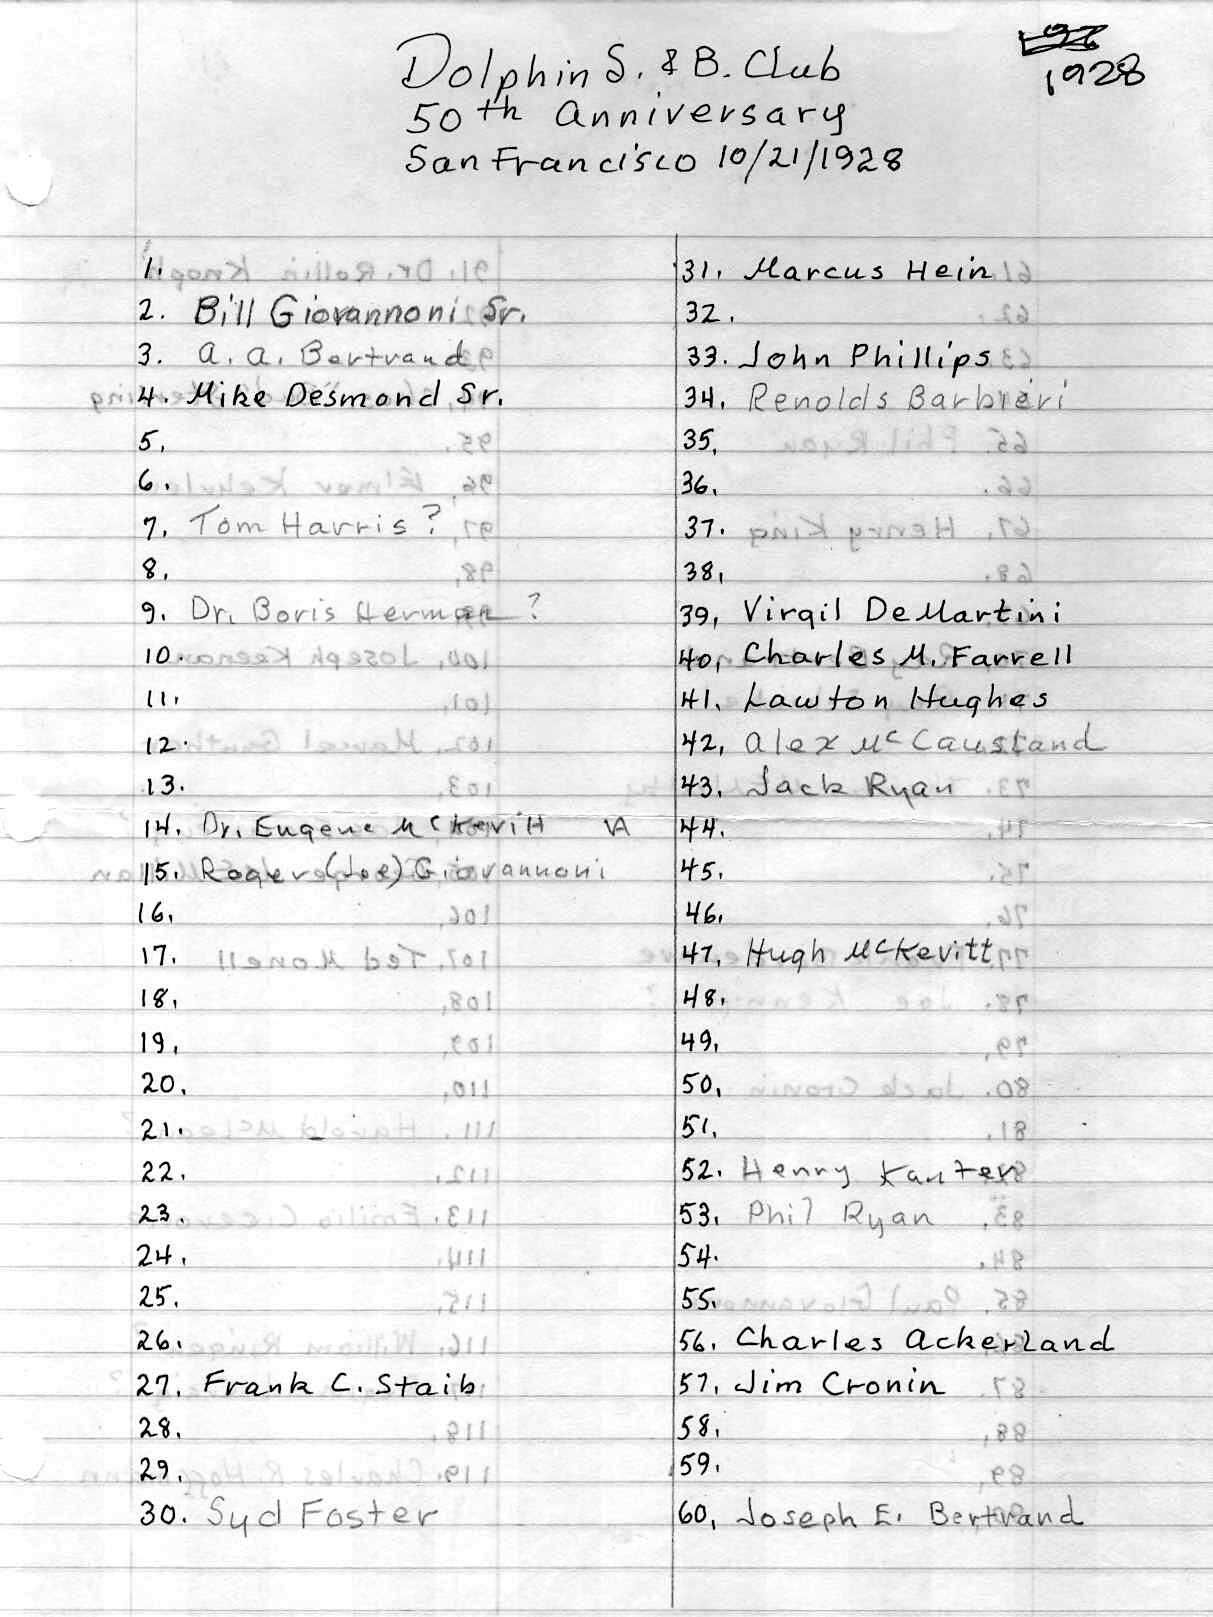 1928
Dolphin S. & B. Club
50th Anniversary
San Francisco 10/21/1928
1.
2. Bill Giovannoni Sr.
3. A. A. Bertrand
4. Mike Desmond Sr.
5.
6.
7. Tom Harris?
8.
9. Dr. Boris Herman ?
10.
11.
12.
13.
14. Dr. Eugene McKevitt
15. Roger (Joe) Giovannoni
16.
17.
18.
19.
20.
21.
22.
23.
24.
25.
26.
27. Frank C. Staib
28.
29.
30. Syd Foster
31. Marcus Hein
32.
33. John Phillips
34. Renolds Barbieri
35.
36.
37.
38.
39. Virgil DeMartini
40. Charles M. Farrell
41. Lawton Hughes
42. Alex McCausland
43. Jack Ryan
44.
45.
46.
47. Hugh McKevitt
48.
49.
50.
51.
52. Henry Kanter
53. Phil Ryan
54.
55.
56. Charles Ackerland
57. Jim Cronin
58.
59.
60. Joseph E. Bertrand